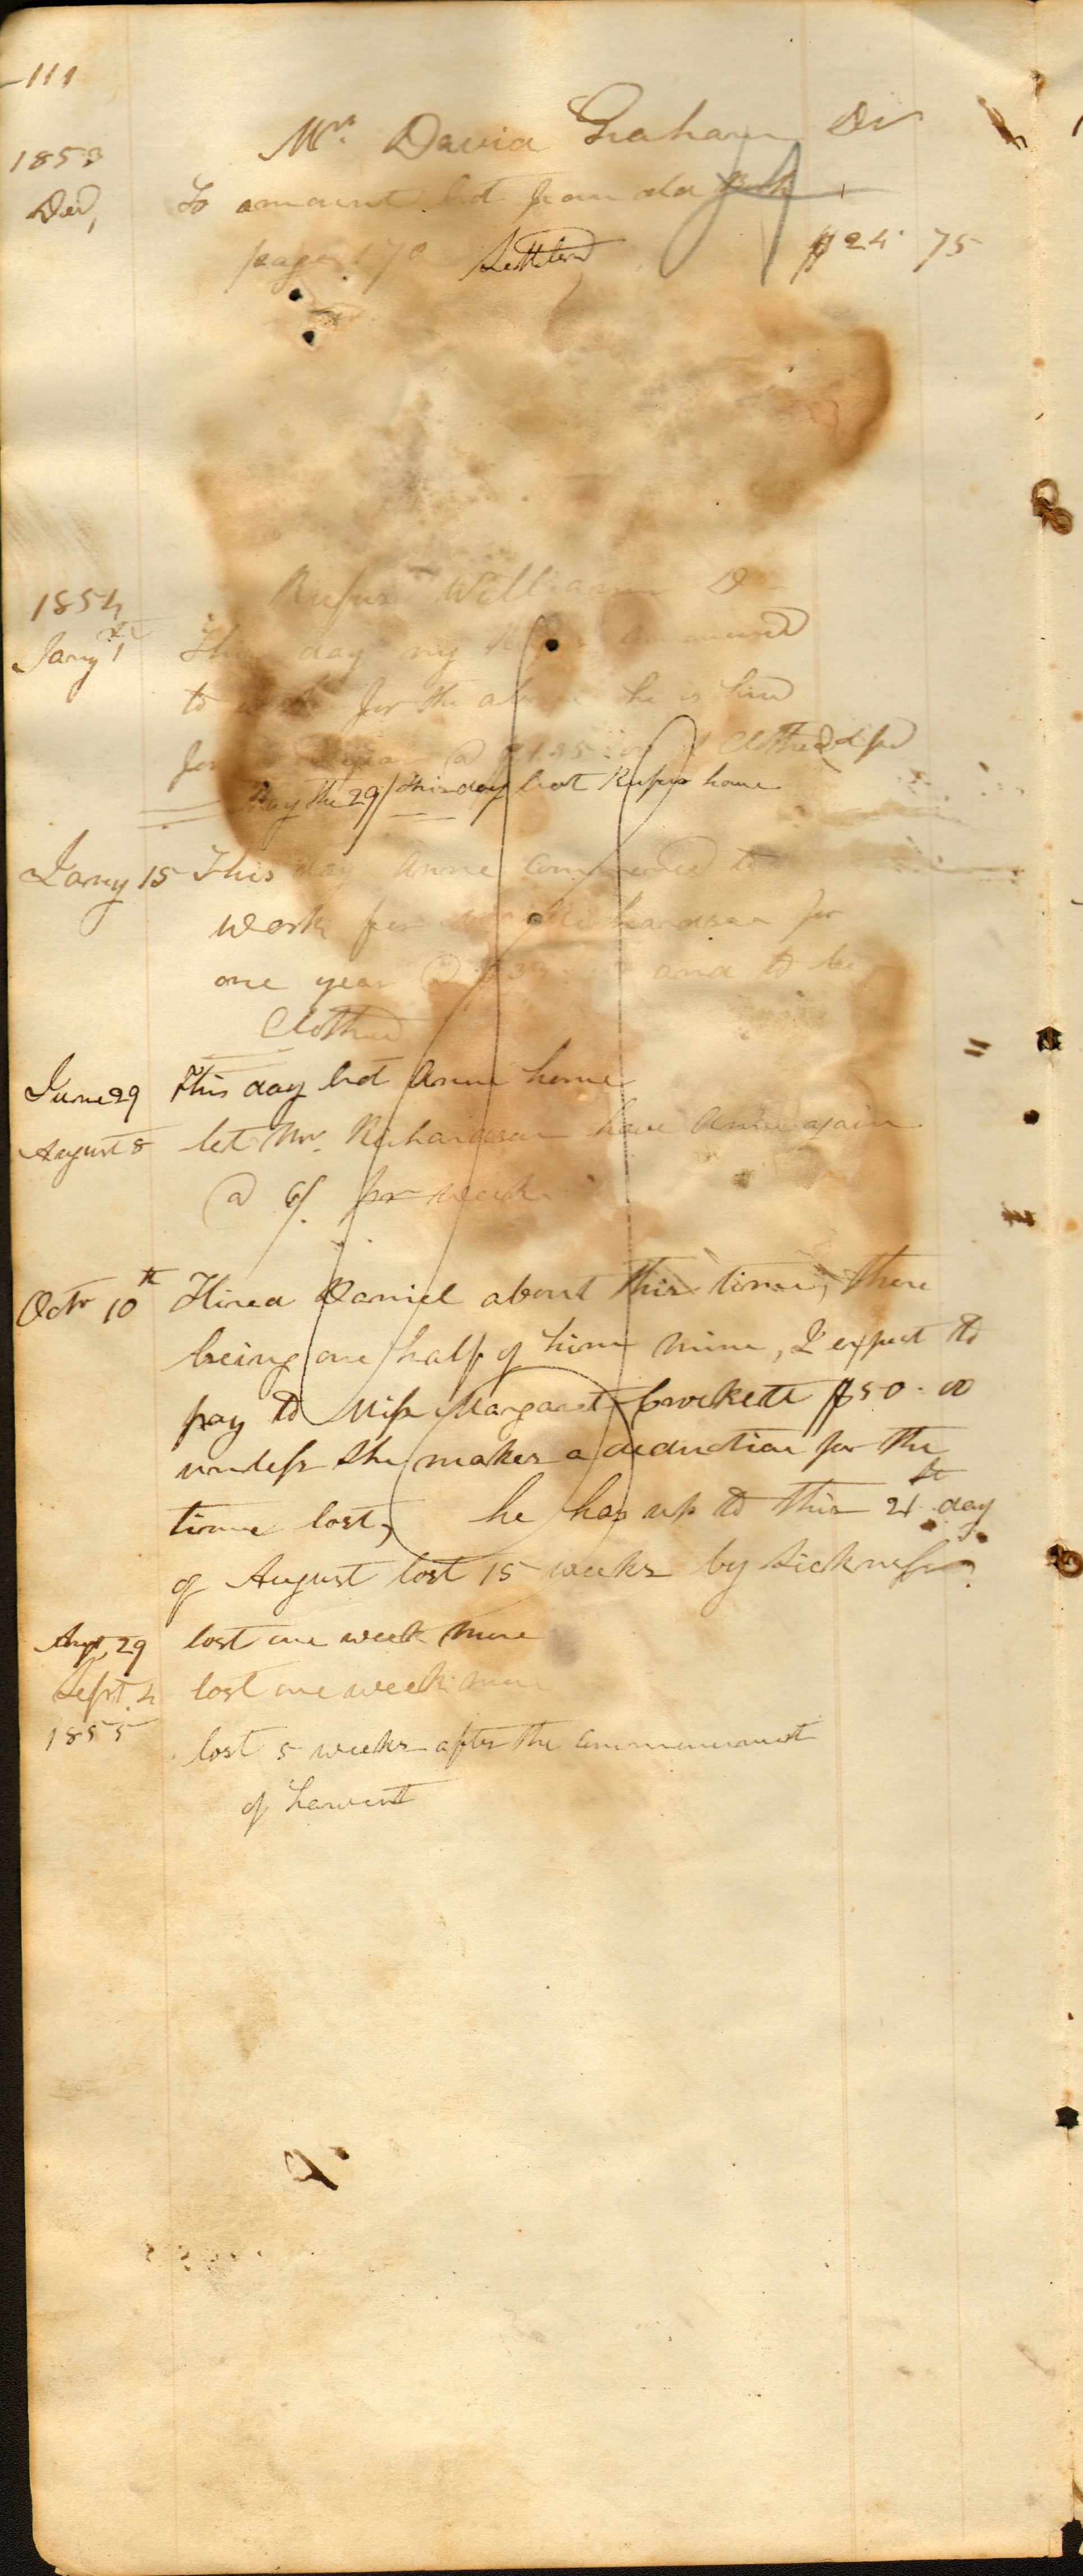 111
Mr. David Graham Dr
1853
Dec, To amount bt from da Book
page 170 Settled $24 75
Rufus Williams D
1854
Jany 1st This day my commenced
to for the above he is hired
for year @ $135 Clothed
May the 29/ this day bot Rufus home
Jany 15 This day Anne commenced to
work for Richardson for
one year @ and to be
Clothed
June 29 this day bot Anne home
August 8 let Mr. Richardson have Anne again
@ 6/. pr week
Octr 10th Hired Daniel about this time, there
being one half of him mine, I expect to
pay to Miss Margaret Crockett $50.00
unless she makes a deduction for the
time lost, he has up to this 21st day
of August lost 15 weeks by sickness
Augt 29 lost one week more
Sept. 4 lost one week more
1855
lost 5 weeks after the commencement
of harvest